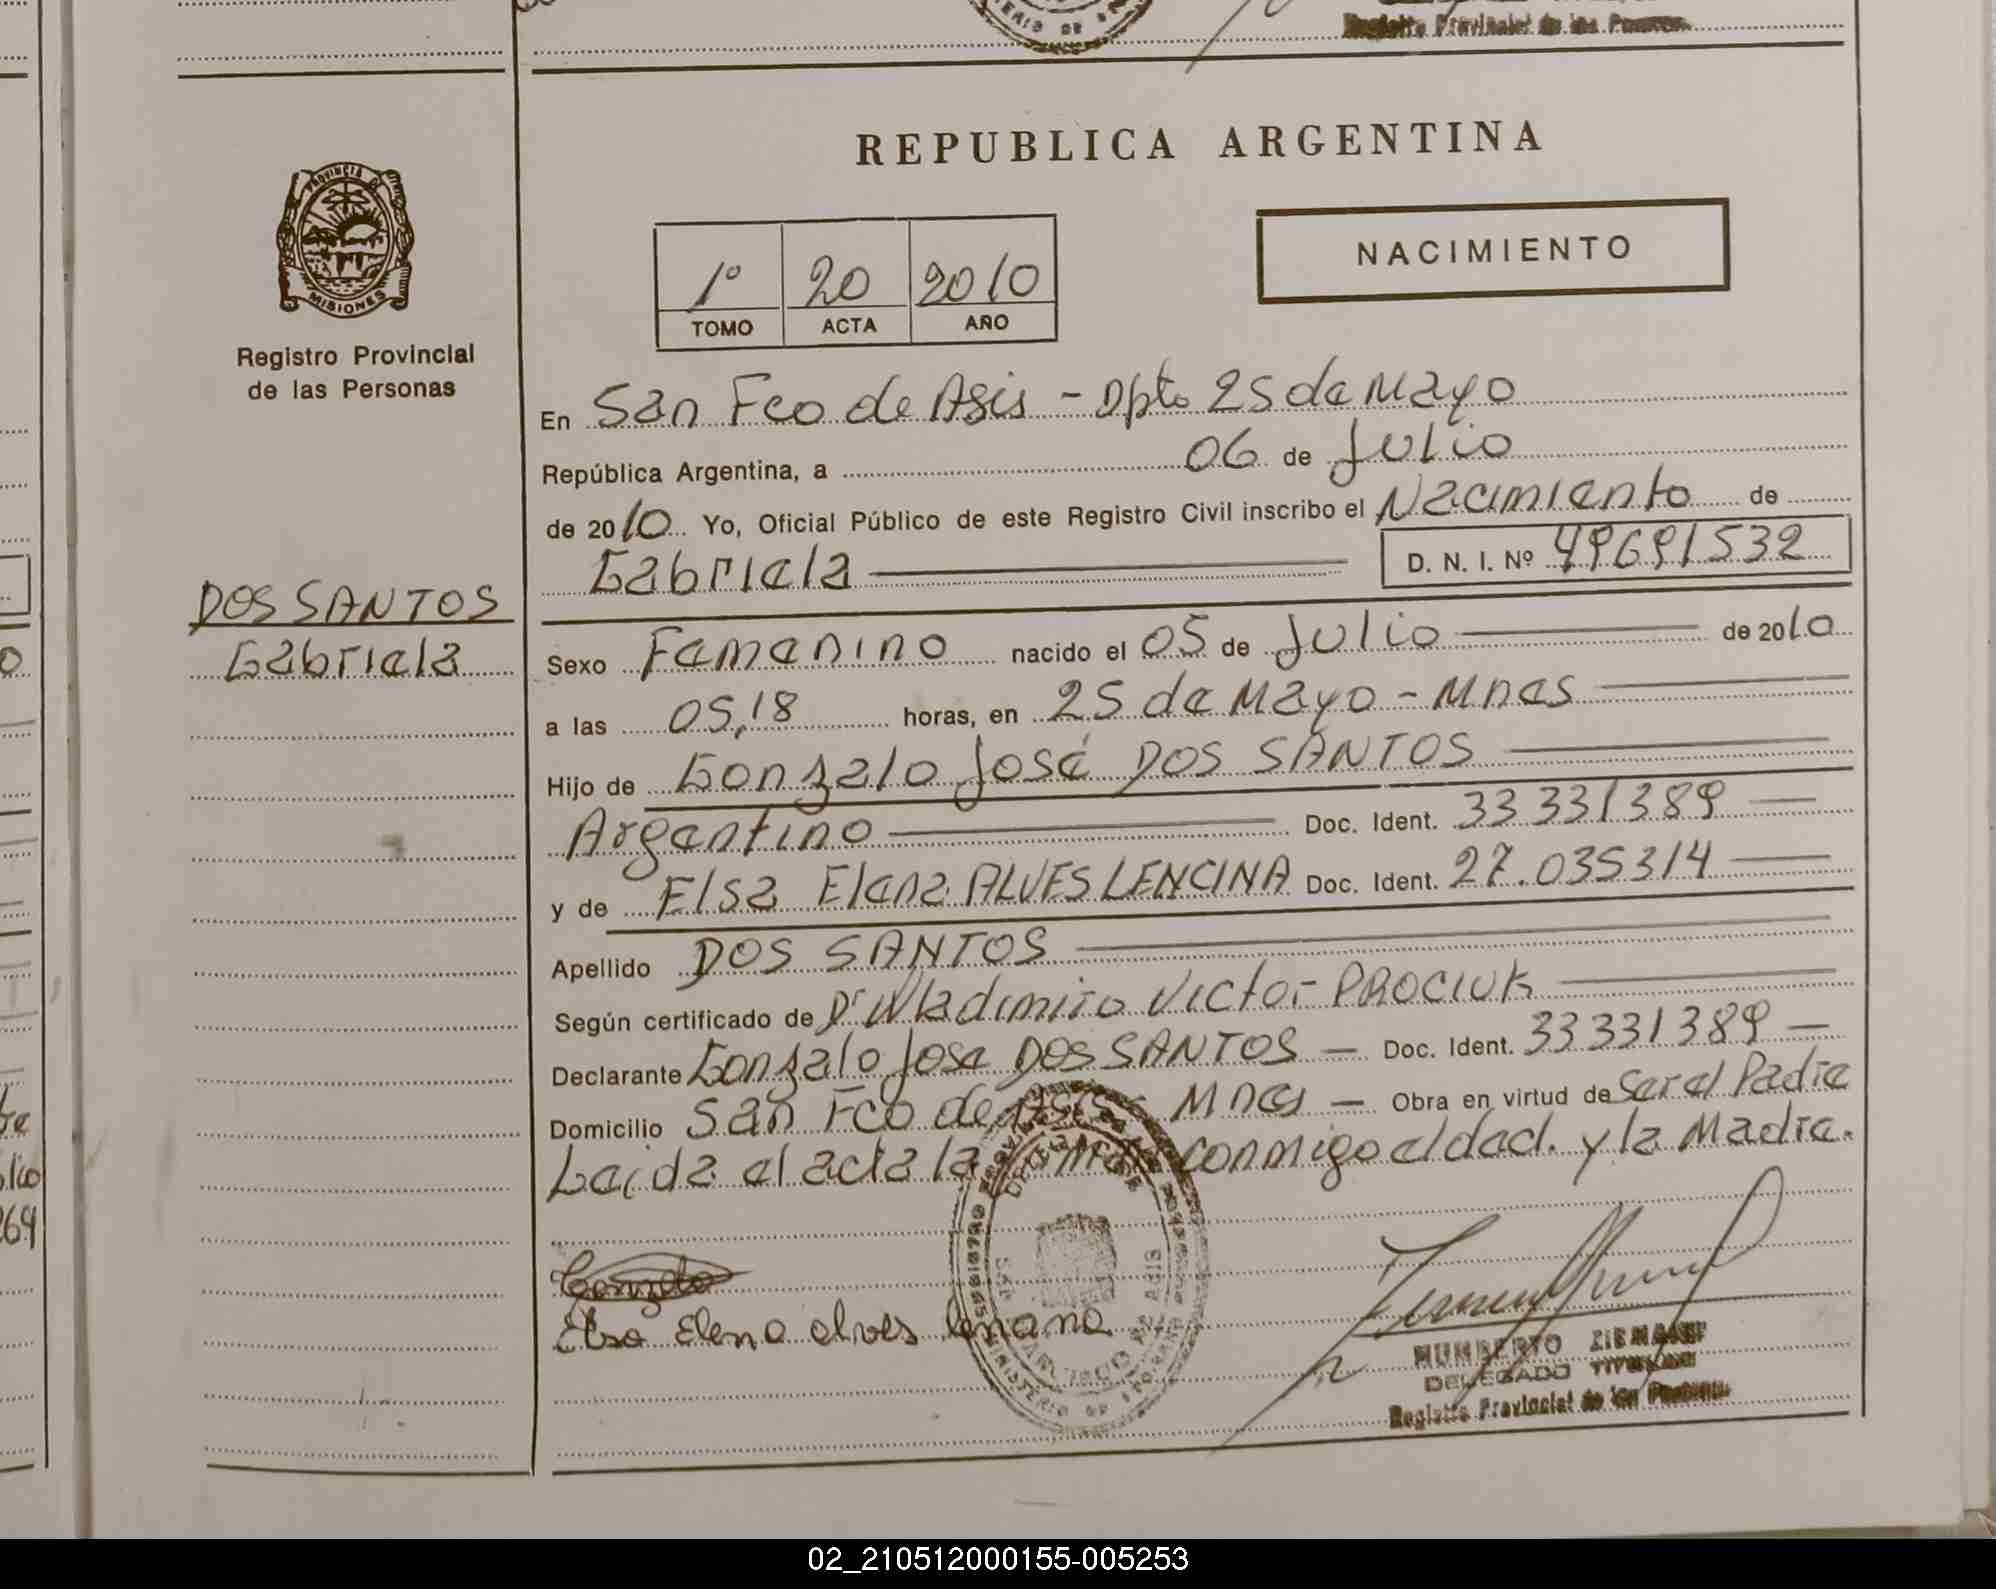 Registro Provincial de las Personas
REPUBLICA ARGENTINA
PROVINCIA DE
MISIONES
Registro Provincial
de las Personas
1º 20 2010
TOMO ACTA AÑO
NACIMIENTO
En San Fco de Asis - Dpto 25 de Mayo
República Argentina, a 06 de Julio
de 2010 Yo, Oficial Público de este Registro Civil inscribo el Nacimiento de
Gabriela D. N. I. Nº 49691532
DOS SANTOS
Gabriela
Sexo Femenino nacido el 05 de Julio de 2010
a las 05,18 horas, en 25 de Mayo - Mnes
Hijo de Gonzalo José DOS SANTOS
Argentino Doc. Ident. 33 331389
y de Elsa Elena ALVES LENCINA Doc. Ident. 27.035314
Apellido DOS SANTOS
Según certificado de Dr Wladimiro Victor PROCIUK
Declarante Gonzalo Jose DOS SANTOS - Doc. Ident. 33 331389 -
Domicilio San Fco de Asis - Mnes - Obra en virtud de Ser el Padre
Leida el acta la conmigo el dad. y la Madre.
Gonzalo
Elsa Elena alves
HUMBERTO
DELEGADO TITULAR
Registro Provincial de las Personas
02_210512000155-005253